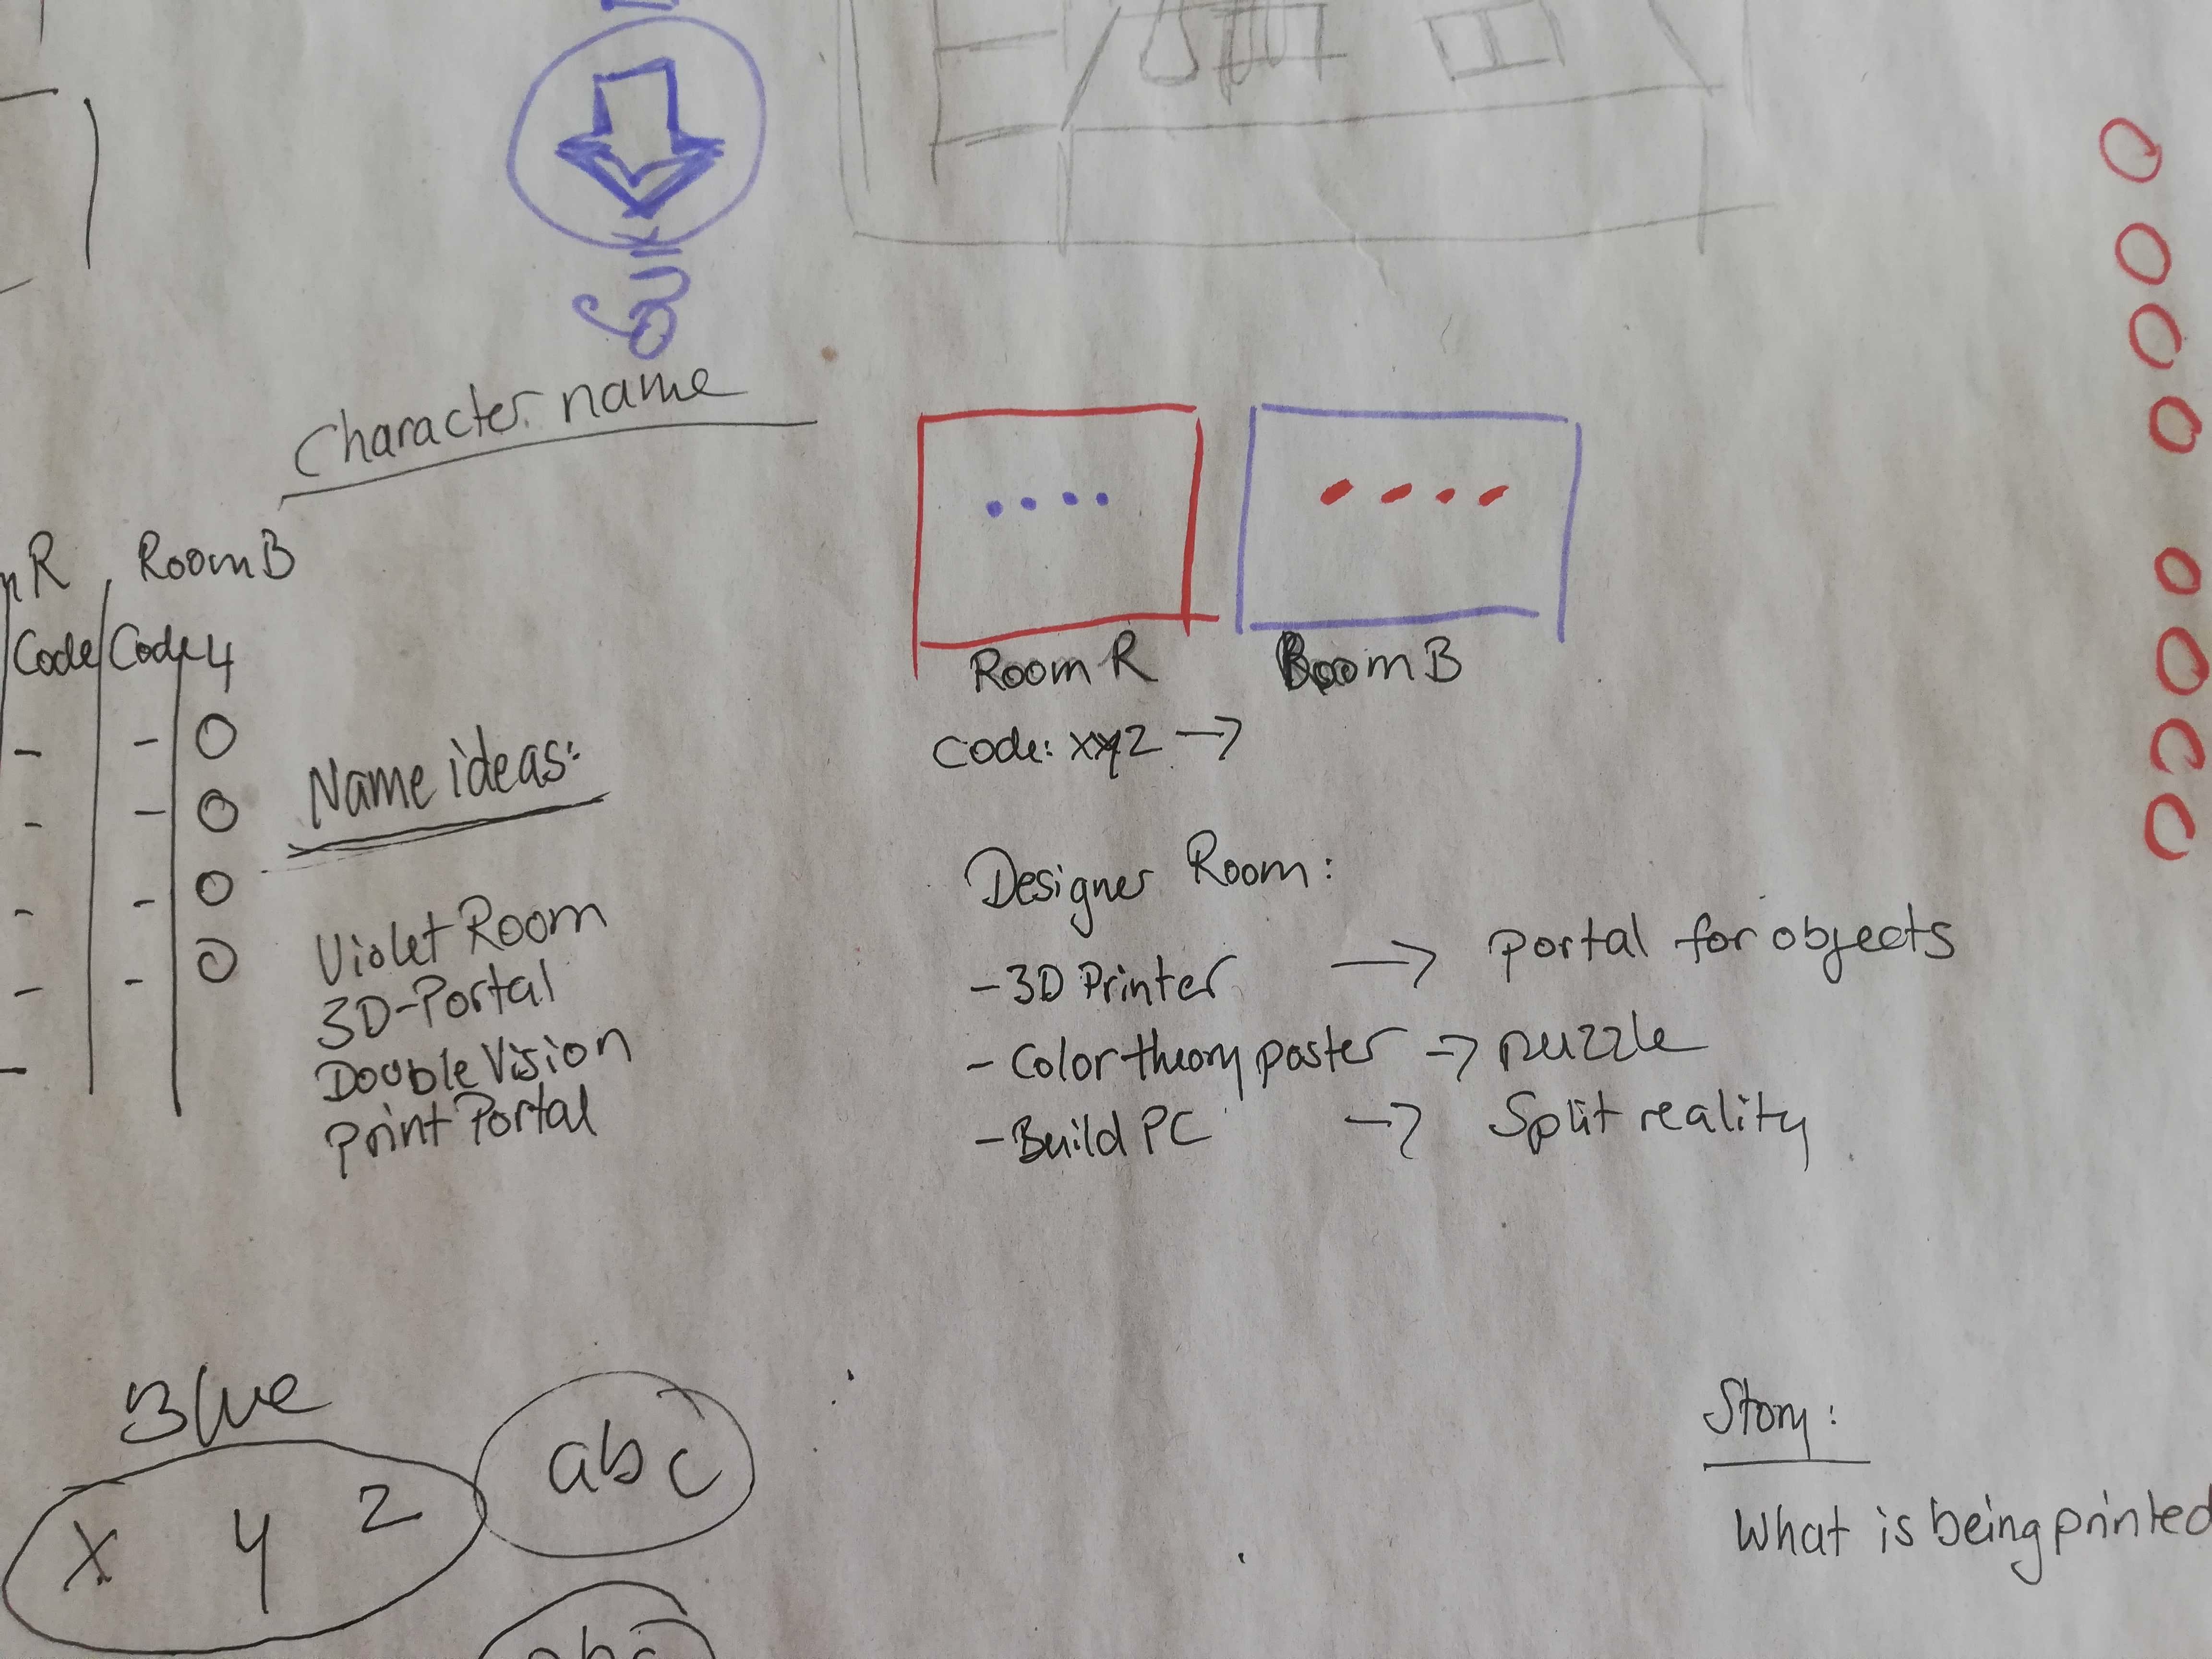 Character name
R RoomB
Code Code 4
Name ideas:
Violet Room
3D-Portal
Double Vision
Print Portal
Room R RoomB
Code: xyz →
Designer Room:
- 3D Printer → portal for objects
- Color theory poster → puzzle
- Build PC → Split reality
Blue
x y z
abc
abc
Story:
What is being printed